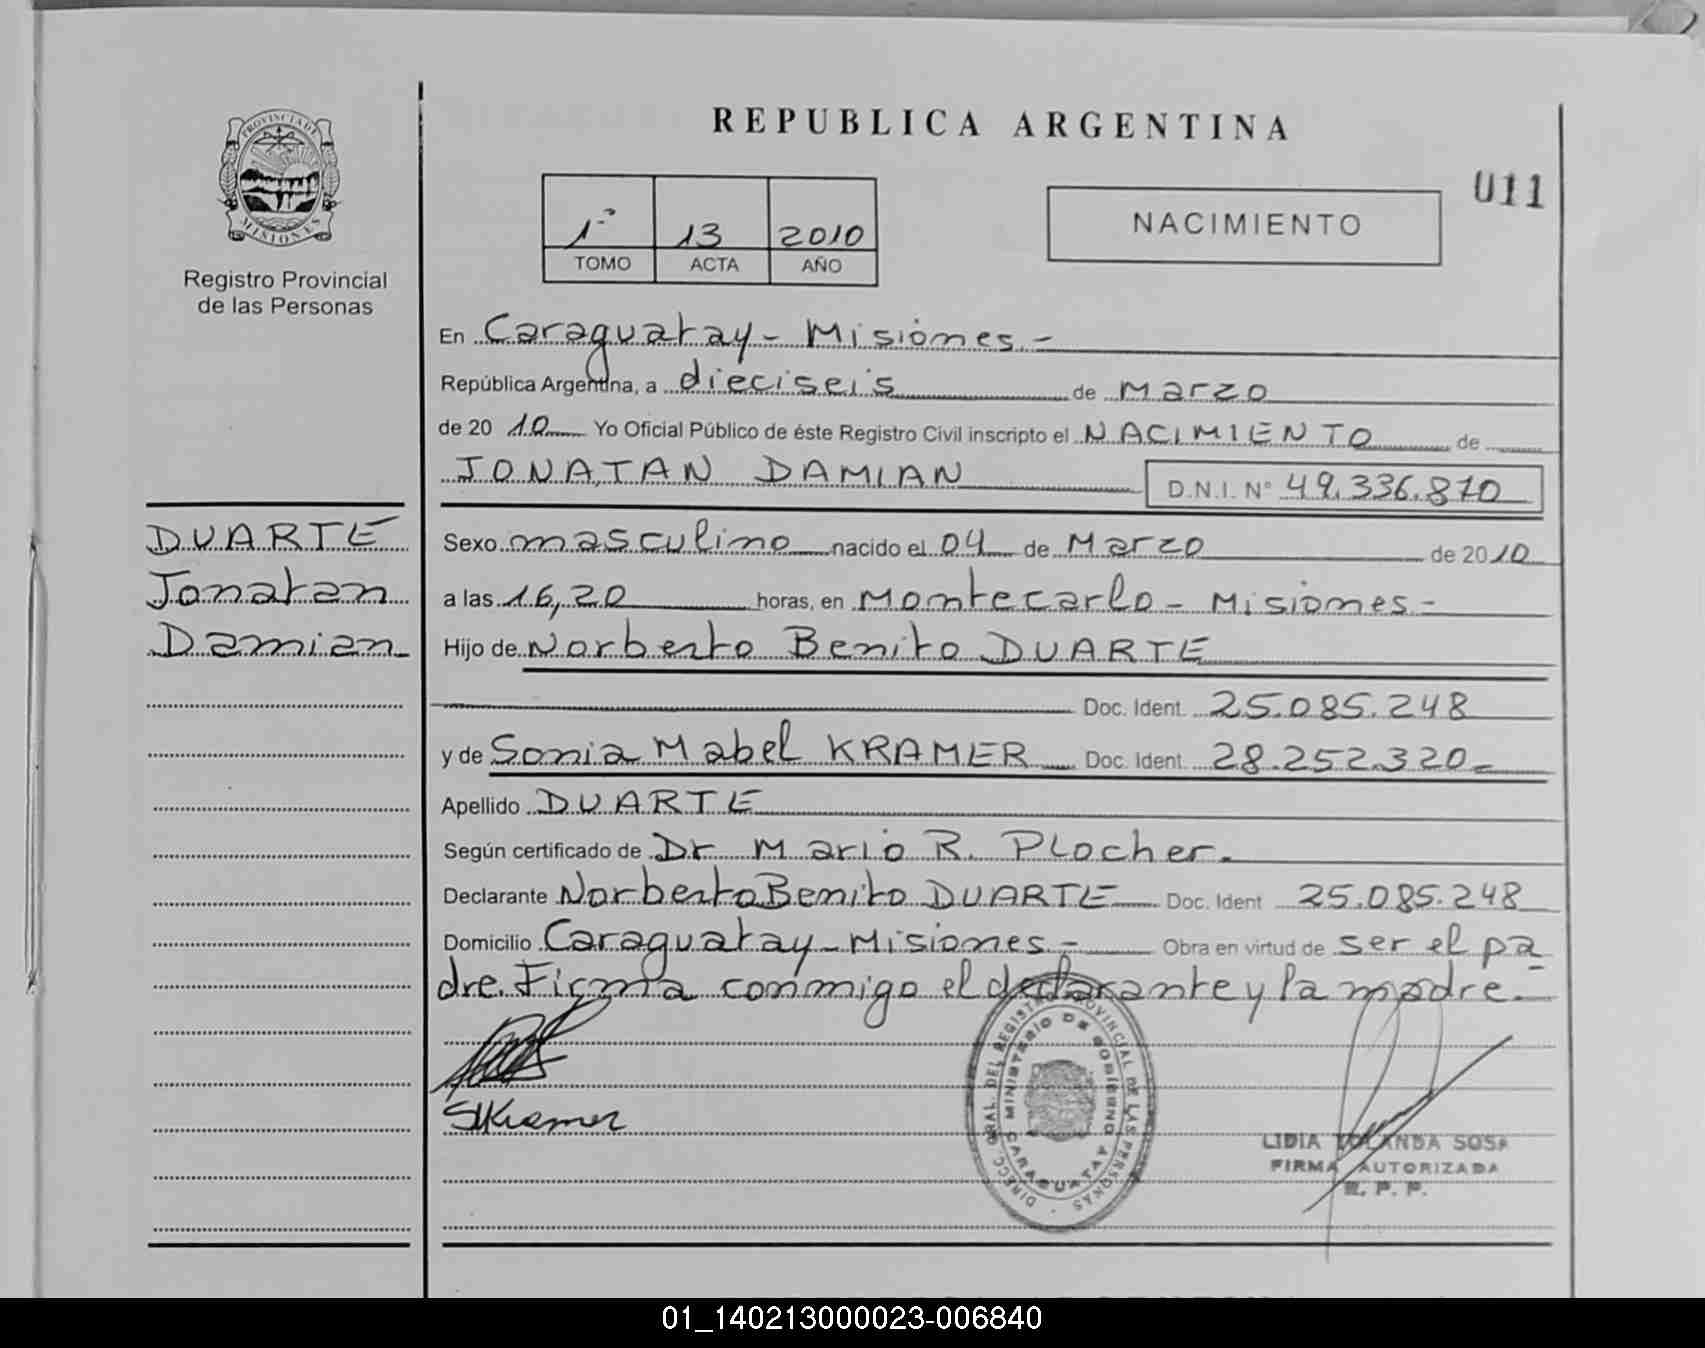 REPUBLICA ARGENTINA
U11
PROVINCIA DE
MISIONES
Registro Provincial
de las Personas
1º 13 2010
TOMO ACTA AÑO
NACIMIENTO
En Caraguatay - Misiones.-
República Argentina, a dieciseis de Marzo
de 20 10 Yo Oficial Público de éste Registro Civil inscripto el NACIMIENTO de
JONATAN DAMIAN D.N.I. Nº 49.336.870
DUARTE
Jonatan
Damian
Sexo masculino nacido el 04 de Marzo de 2010
a las 16,20 horas, en Montecarlo - Misiones -
Hijo de Norberto Benito DUARTE
Doc. Ident. 25.085.248
y de Sonia Mabel KRAMER Doc. Ident. 28.252.320-
Apellido DUARTE
Según certificado de Dr Mario R. Plocher.
Declarante Norberto Benito DUARTE Doc. Ident 25.085.248
Domicilio Caraguatay - Misiones - Obra en virtud de ser el pa
dre. Firma conmigo el declarante y la madre.-
SKramer
DIRECC. GRAL. DEL REGISTRO PROVINCIAL DE LAS PERSONAS
MINISTERIO DE GOBIERNO
CARAGUATAY
LIDIA YOLANDA SOSA
FIRMA AUTORIZADA
R. P. P.
01_140213000023-006840